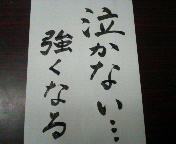 泣かない…
強くなる